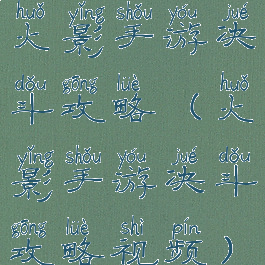 huǒ yǐng shǒu yóu jué
火影手游决
dǒu gōng lüè huǒ
斗攻略(火
yǐng shǒu yóu jué dǒu
影手游决斗
gōng lüè shì pín
攻略视频)